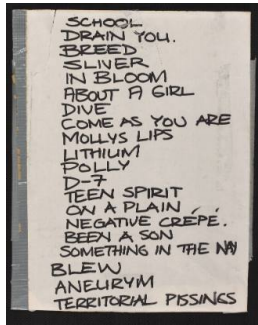 SCHOOL
DRAIN YOU.
BREED
SLIVER
IN BLOOM
ABOUT A GIRL
DIVE
COME AS YOU ARE
MOLLYS LIPS
LITHIUM
POLLY
D-7
TEEN SPIRIT
ON A PLAIN
NEGATIVE CRÉPÉ.
BEEN A SON
SOMETHING IN THE WAY
BLEW
ANEURYIM
TERRITORIAL PISSINGS